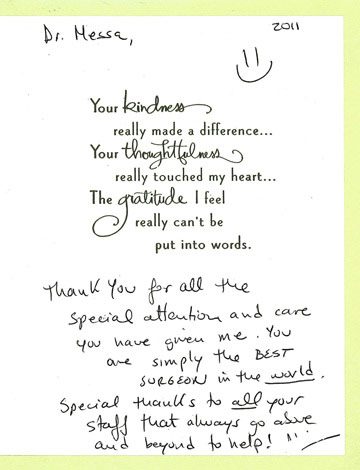 Dr. Messa, 2011
Your kindness
really made a difference...
Your thoughtfulness
really touched my heart...
The gratitude I feel
really can't be
put into words.
Thank You for all the
special attention and care
you have given me. You
are simply the BEST
SURGEON in the world.
Special thanks to all your
staff that always go above
and beyond to help!